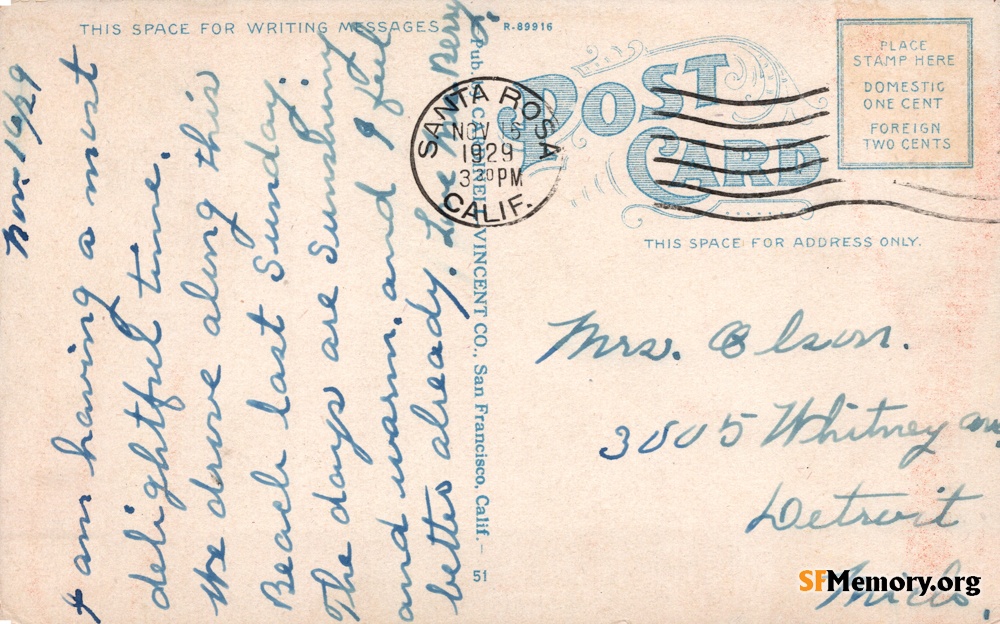 THIS SPACE FOR WRITING MESSAGES
R-89916
Nov. 16/29
I am having a most
delightful time.
We drove along this
Beach last Sunday.
The days are Sunshiny
and warm, and I feel
better already. Love
Pub. by
VINCENT CO., San Francisco, Calif.
51
POST CARD
SANTA ROSA
NOV 15
1929
3 30 PM
CALIF.
PLACE
STAMP HERE
DOMESTIC
ONE CENT
FOREIGN
TWO CENTS
THIS SPACE FOR ADDRESS ONLY.
Mrs. Olson.
3005 Whitney
Detroit
Mich.
SFMemory.org